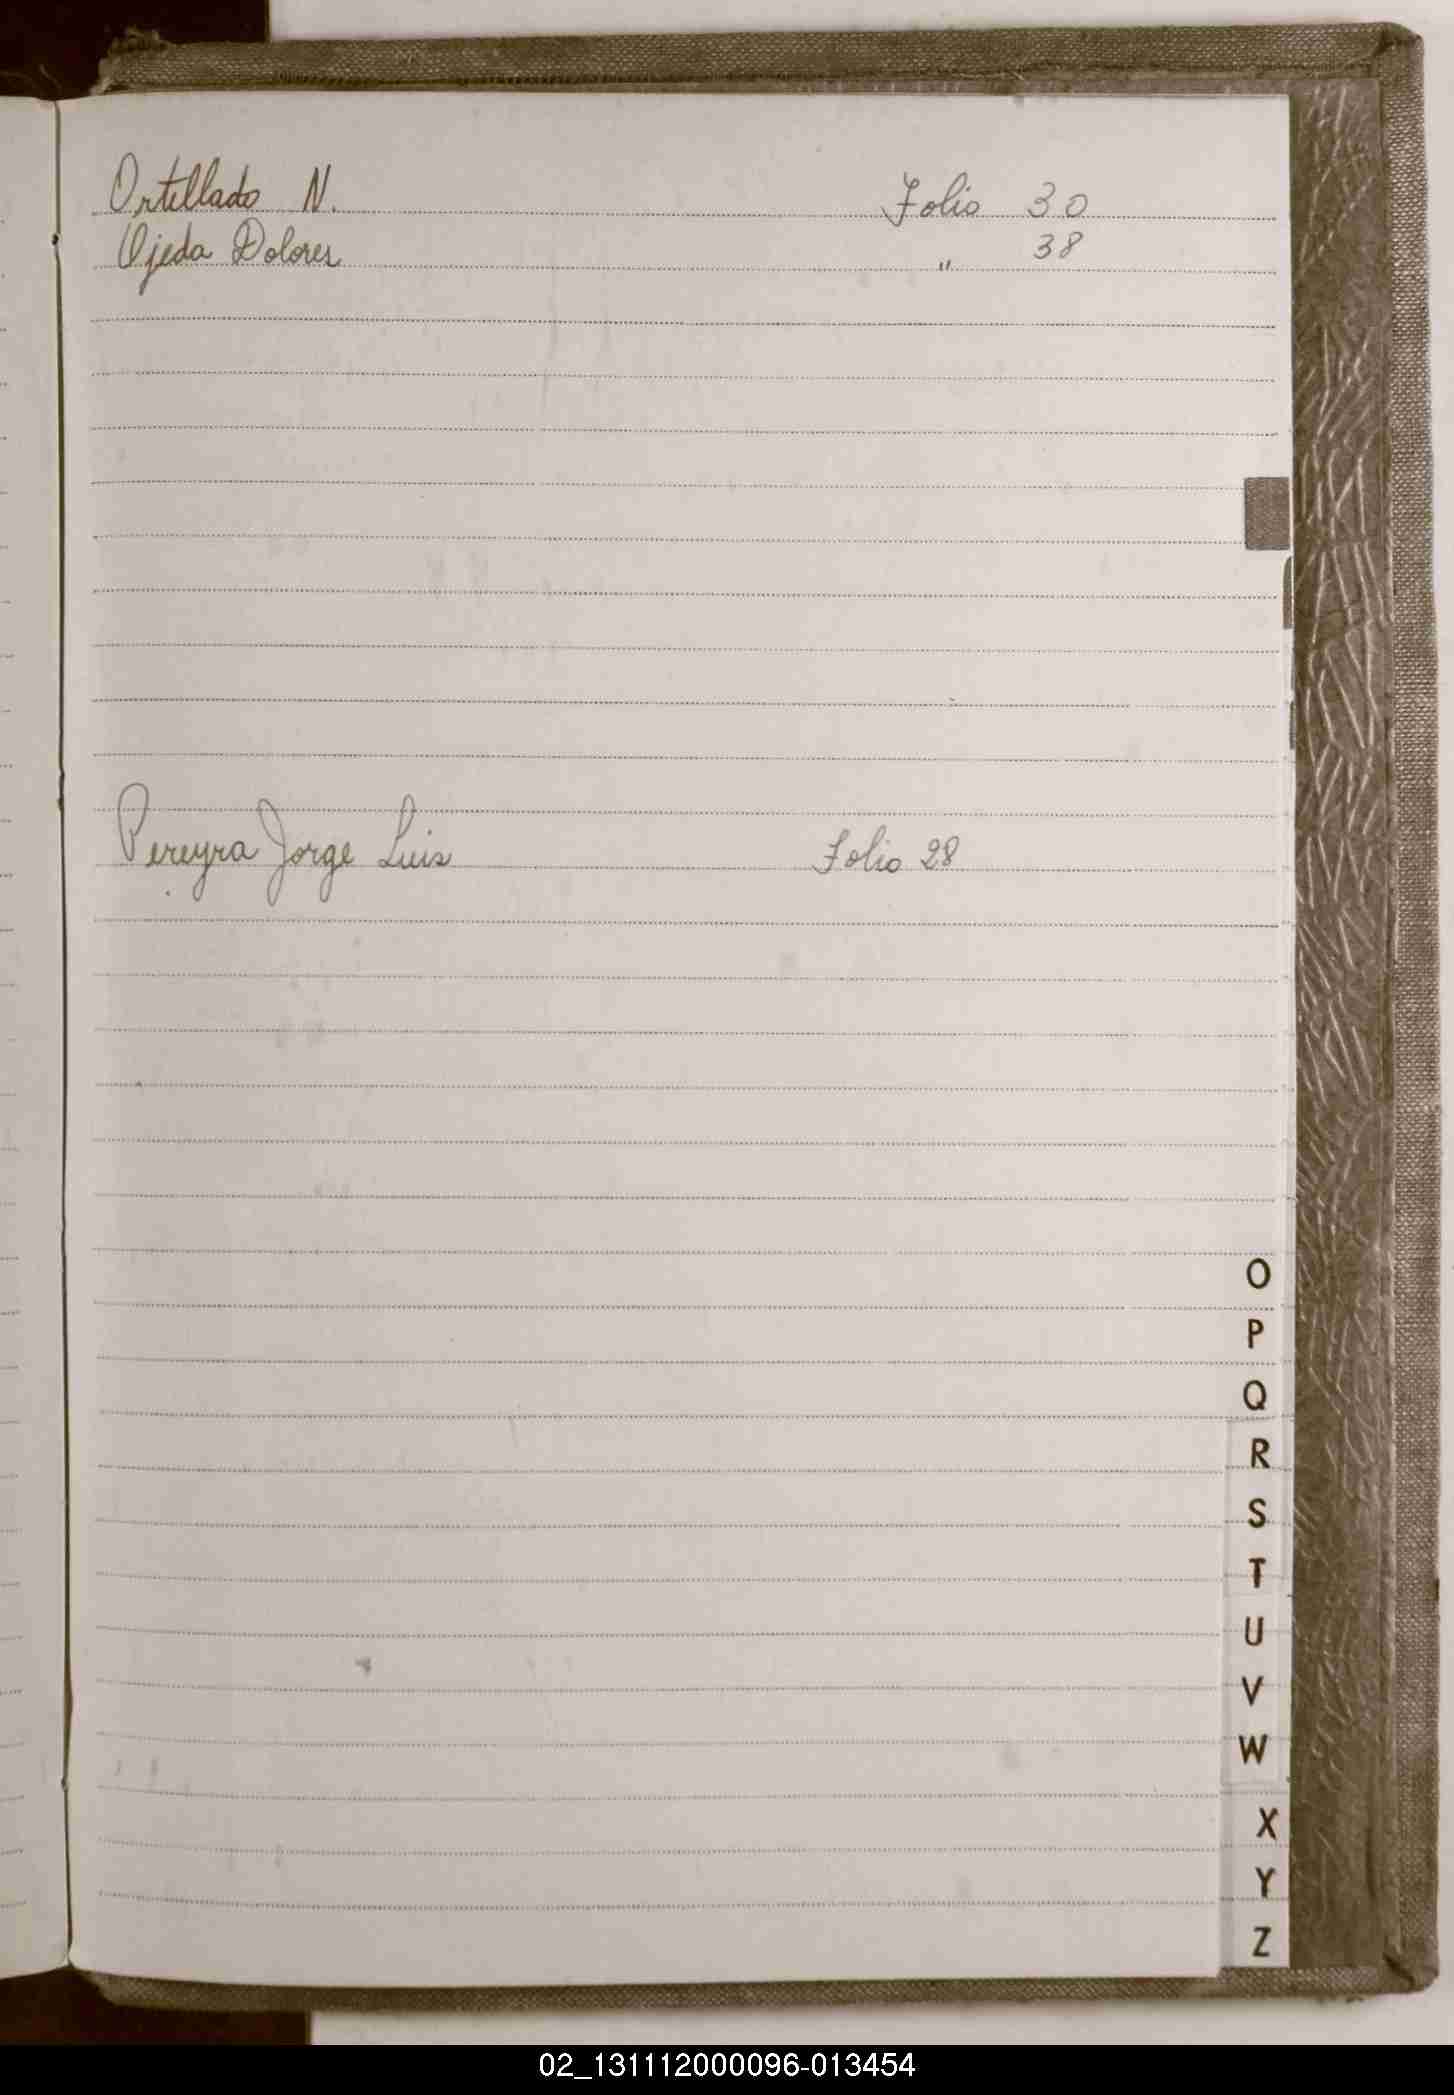 Ortellado N. Folio 30
Ojeda Dolores " 38
Pereyra Jorge Luis Folio 28
O
P
Q
R
S
T
U
V
W
X
Y
Z
02_131112000096-013454